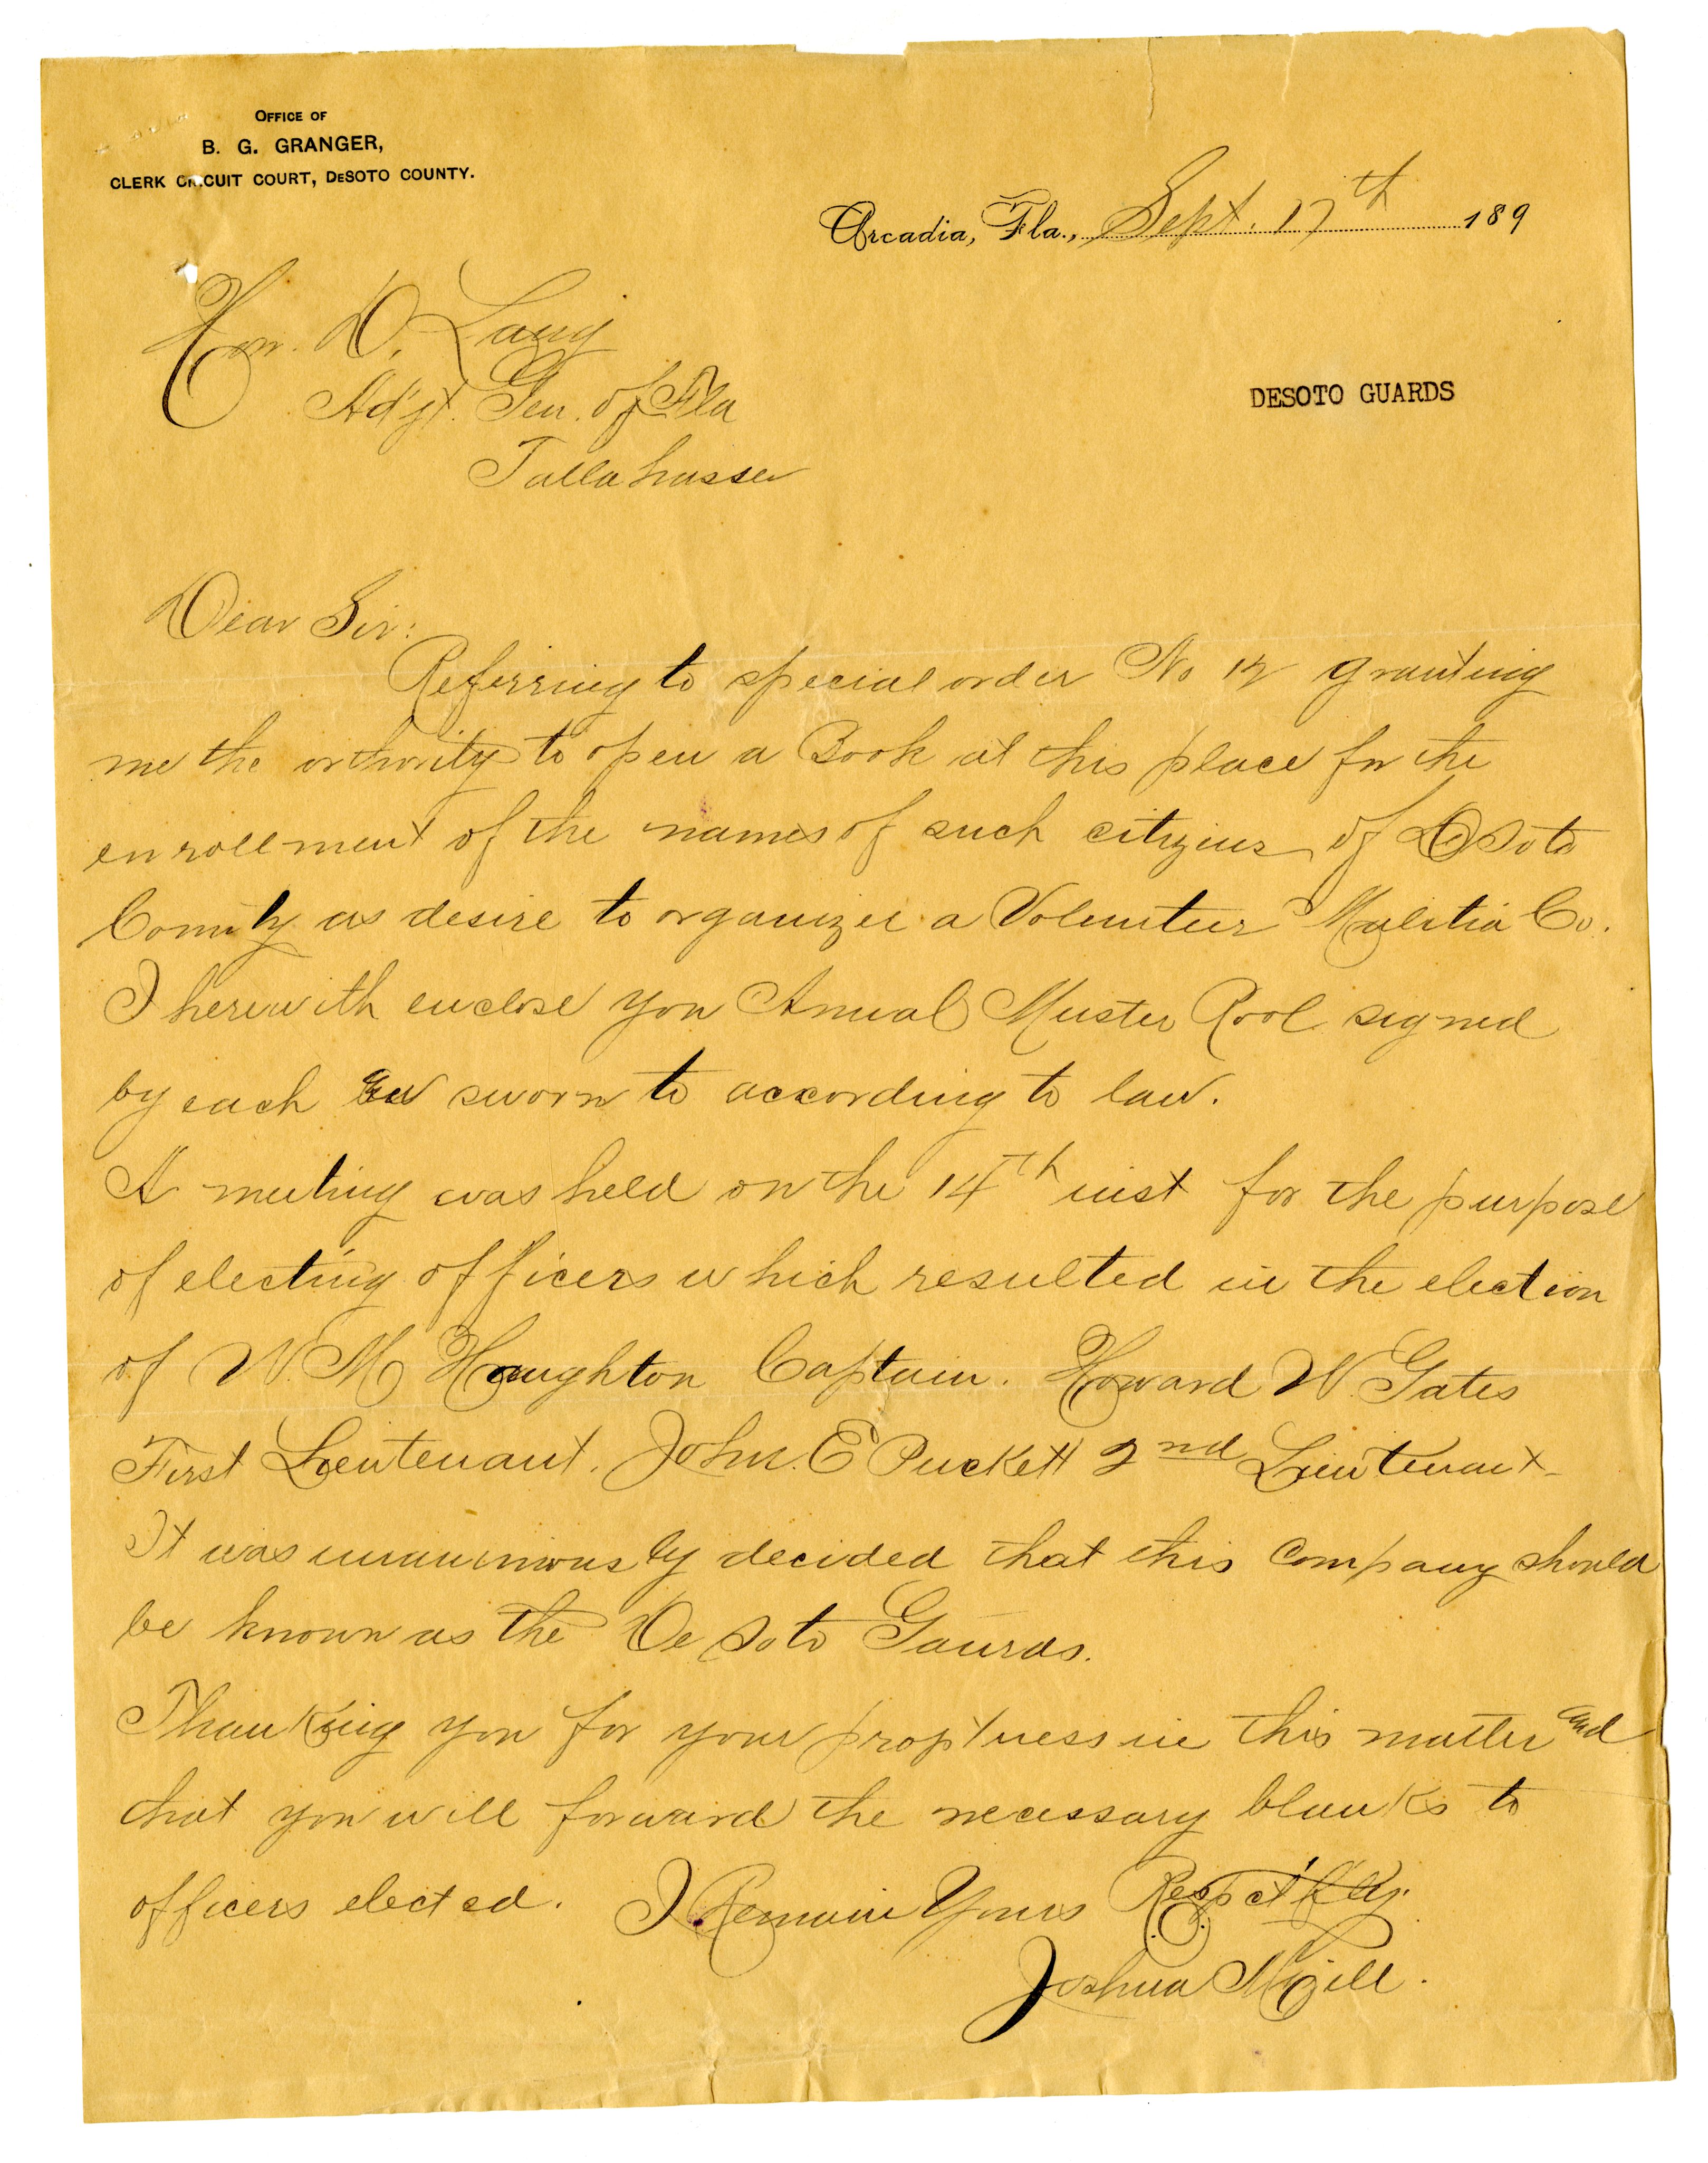 OFFICE OF
B. G. GRANGER,
CLERK CIRCUIT COURT, DESOTO COUNTY.
Arcadia, Fla., Sept. 17th 189
Hon. D. Lang
Adjt. Gen. of Fla
Tallahassee
DESOTO GUARDS
Dear Sir:
Referring to special order No 12 granting
me the orthority to open a Book at this place for the
enrollment of the names of such citizens of DeSoto
County as desire to organize a Volunteer Malitia Co.
I herewith enclose you Annual Muster Rool signed
by each sworn to according to law.
A meeting was held on the 14th inst for the purpose
of electing officers which resulted in the election
of W. M Houghton Captain. Howard W. Gates
First Lieutenant. John. E Puckett 2nd Lieutenant
It was unanimously decided that this Company should
be known as the De Soto Gaurds.
Thanking you for your proptness in this matter and
that you will forward the necessary blanks to
officers elected. I Remain Yours Respct'flly.
Joshua Mizell.